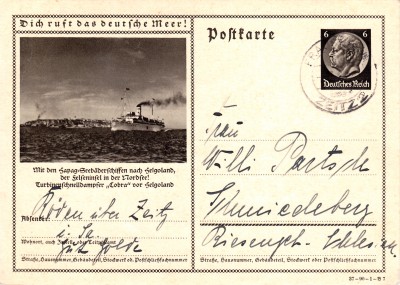 Dich ruft das deutsche Meer!
Mit den Hapag-Seebäderschiffen nach Helgoland,
der Felseninsel in der Nordsee!
Turbinenschnelldampfer „Cobra“ vor Helgoland
Absender:
Röden über Zeitz
i. Sa.
Wohnort, auch Zustell- oder Leitpostamt
Gut Golde
Straße, Hausnummer, Gebäudeteil, Stockwerk od. Postschließfachnummer
Postkarte
6 6
Deutsches Reich
ZEITZ 2
Frau
Willi Partsch
Schmiedeberg
Riesengeb. Schlesien
Straße, Hausnummer, Gebäudeteil, Stockwerk oder Postschließfachnummer